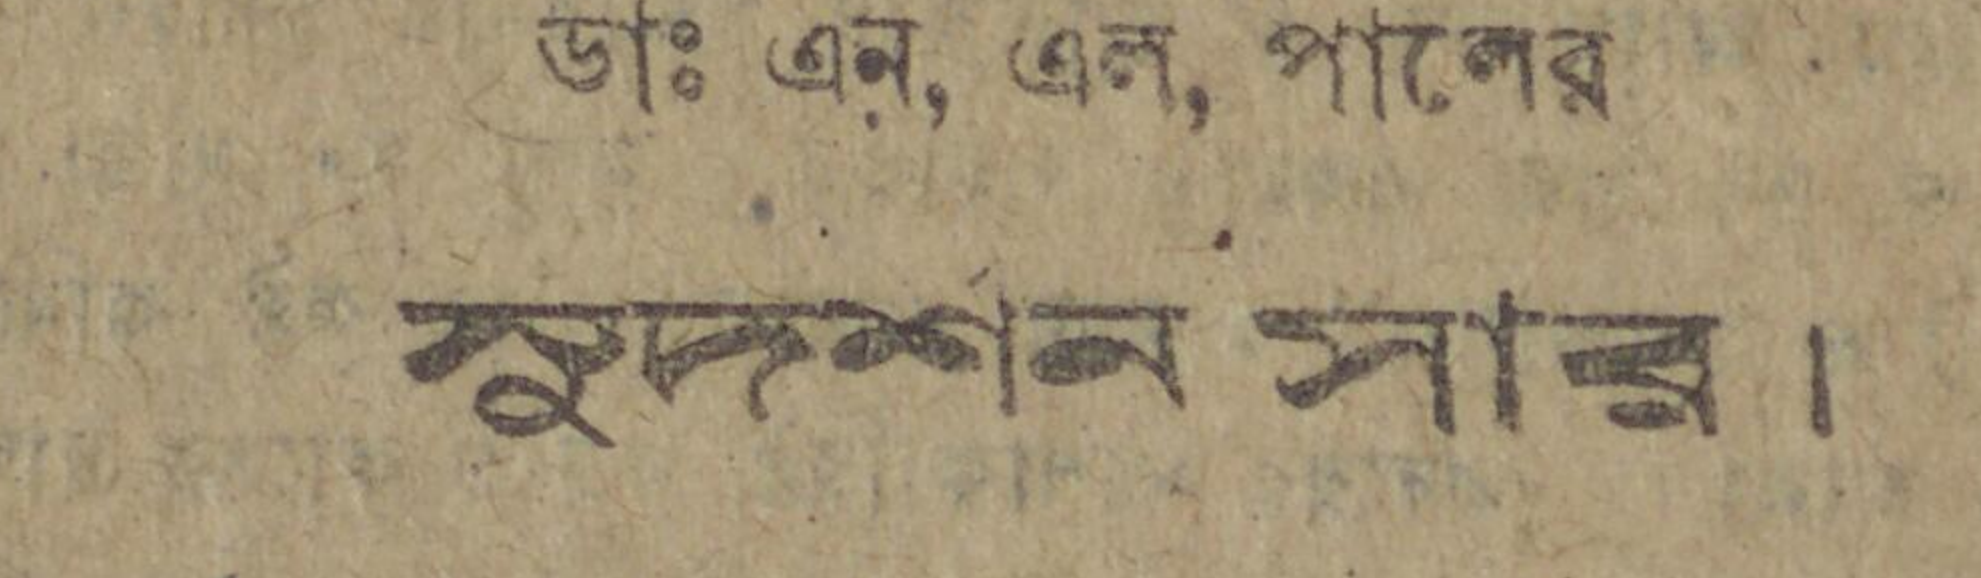 ডাঃ এন্, এল, পালের
সুদর্শন সার।